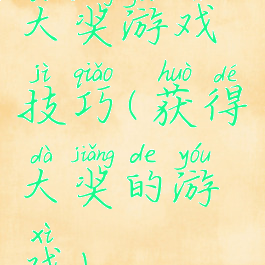 大奖游戏
jì qiǎo huò dé
技巧(获得
dà jiǎng de yóu
大奖的游
xì
戏)